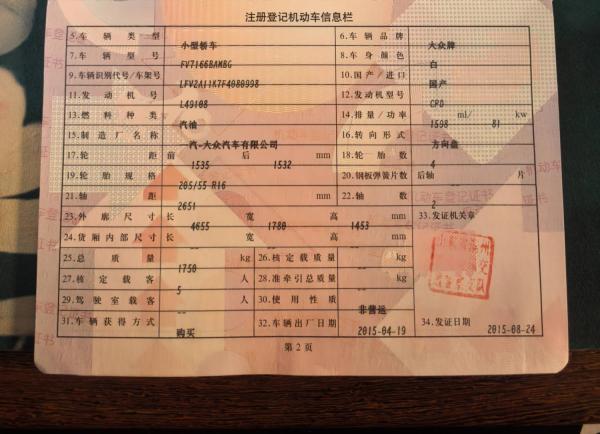 注册登记机动车信息栏
5.车辆类型 小型轿车 6.车辆品牌 大众牌
7.车辆型号 FV7166BAMBG 8.车身颜色 白
9.车辆识别代号/车架号 LFV2A11K7F4080998 10.国产/进口 国产
11.发动机号 L49108 12.发动机型号 CPD
13.燃料种类 汽油 14.排量/功率 1598 ml/ 81 kw
15.制造厂名称 一汽-大众汽车有限公司 16.转向形式 方向盘
17.轮距 前 1535 后 1532 mm 18.轮胎数 4
19.轮胎规格 205/55 R16 20.钢板弹簧片数 后轴 -- 片
21.轴距 2651 mm 22.轴数 2
23.外廓尺寸 长 4655 宽 1780 高 1453 mm 33.发证机关章
24.货厢内部尺寸 长 -- 宽 -- 高 -- mm
25.总质量 1750 kg 26.核定载质量 -- kg
27.核定载客 5 人 28.准牵引总质量 -- kg
29.驾驶室载客 -- 人 30.使用性质 非营运
31.车辆获得方式 购买 32.车辆出厂日期 2015-04-19 34.发证日期 2015-08-24
第2页